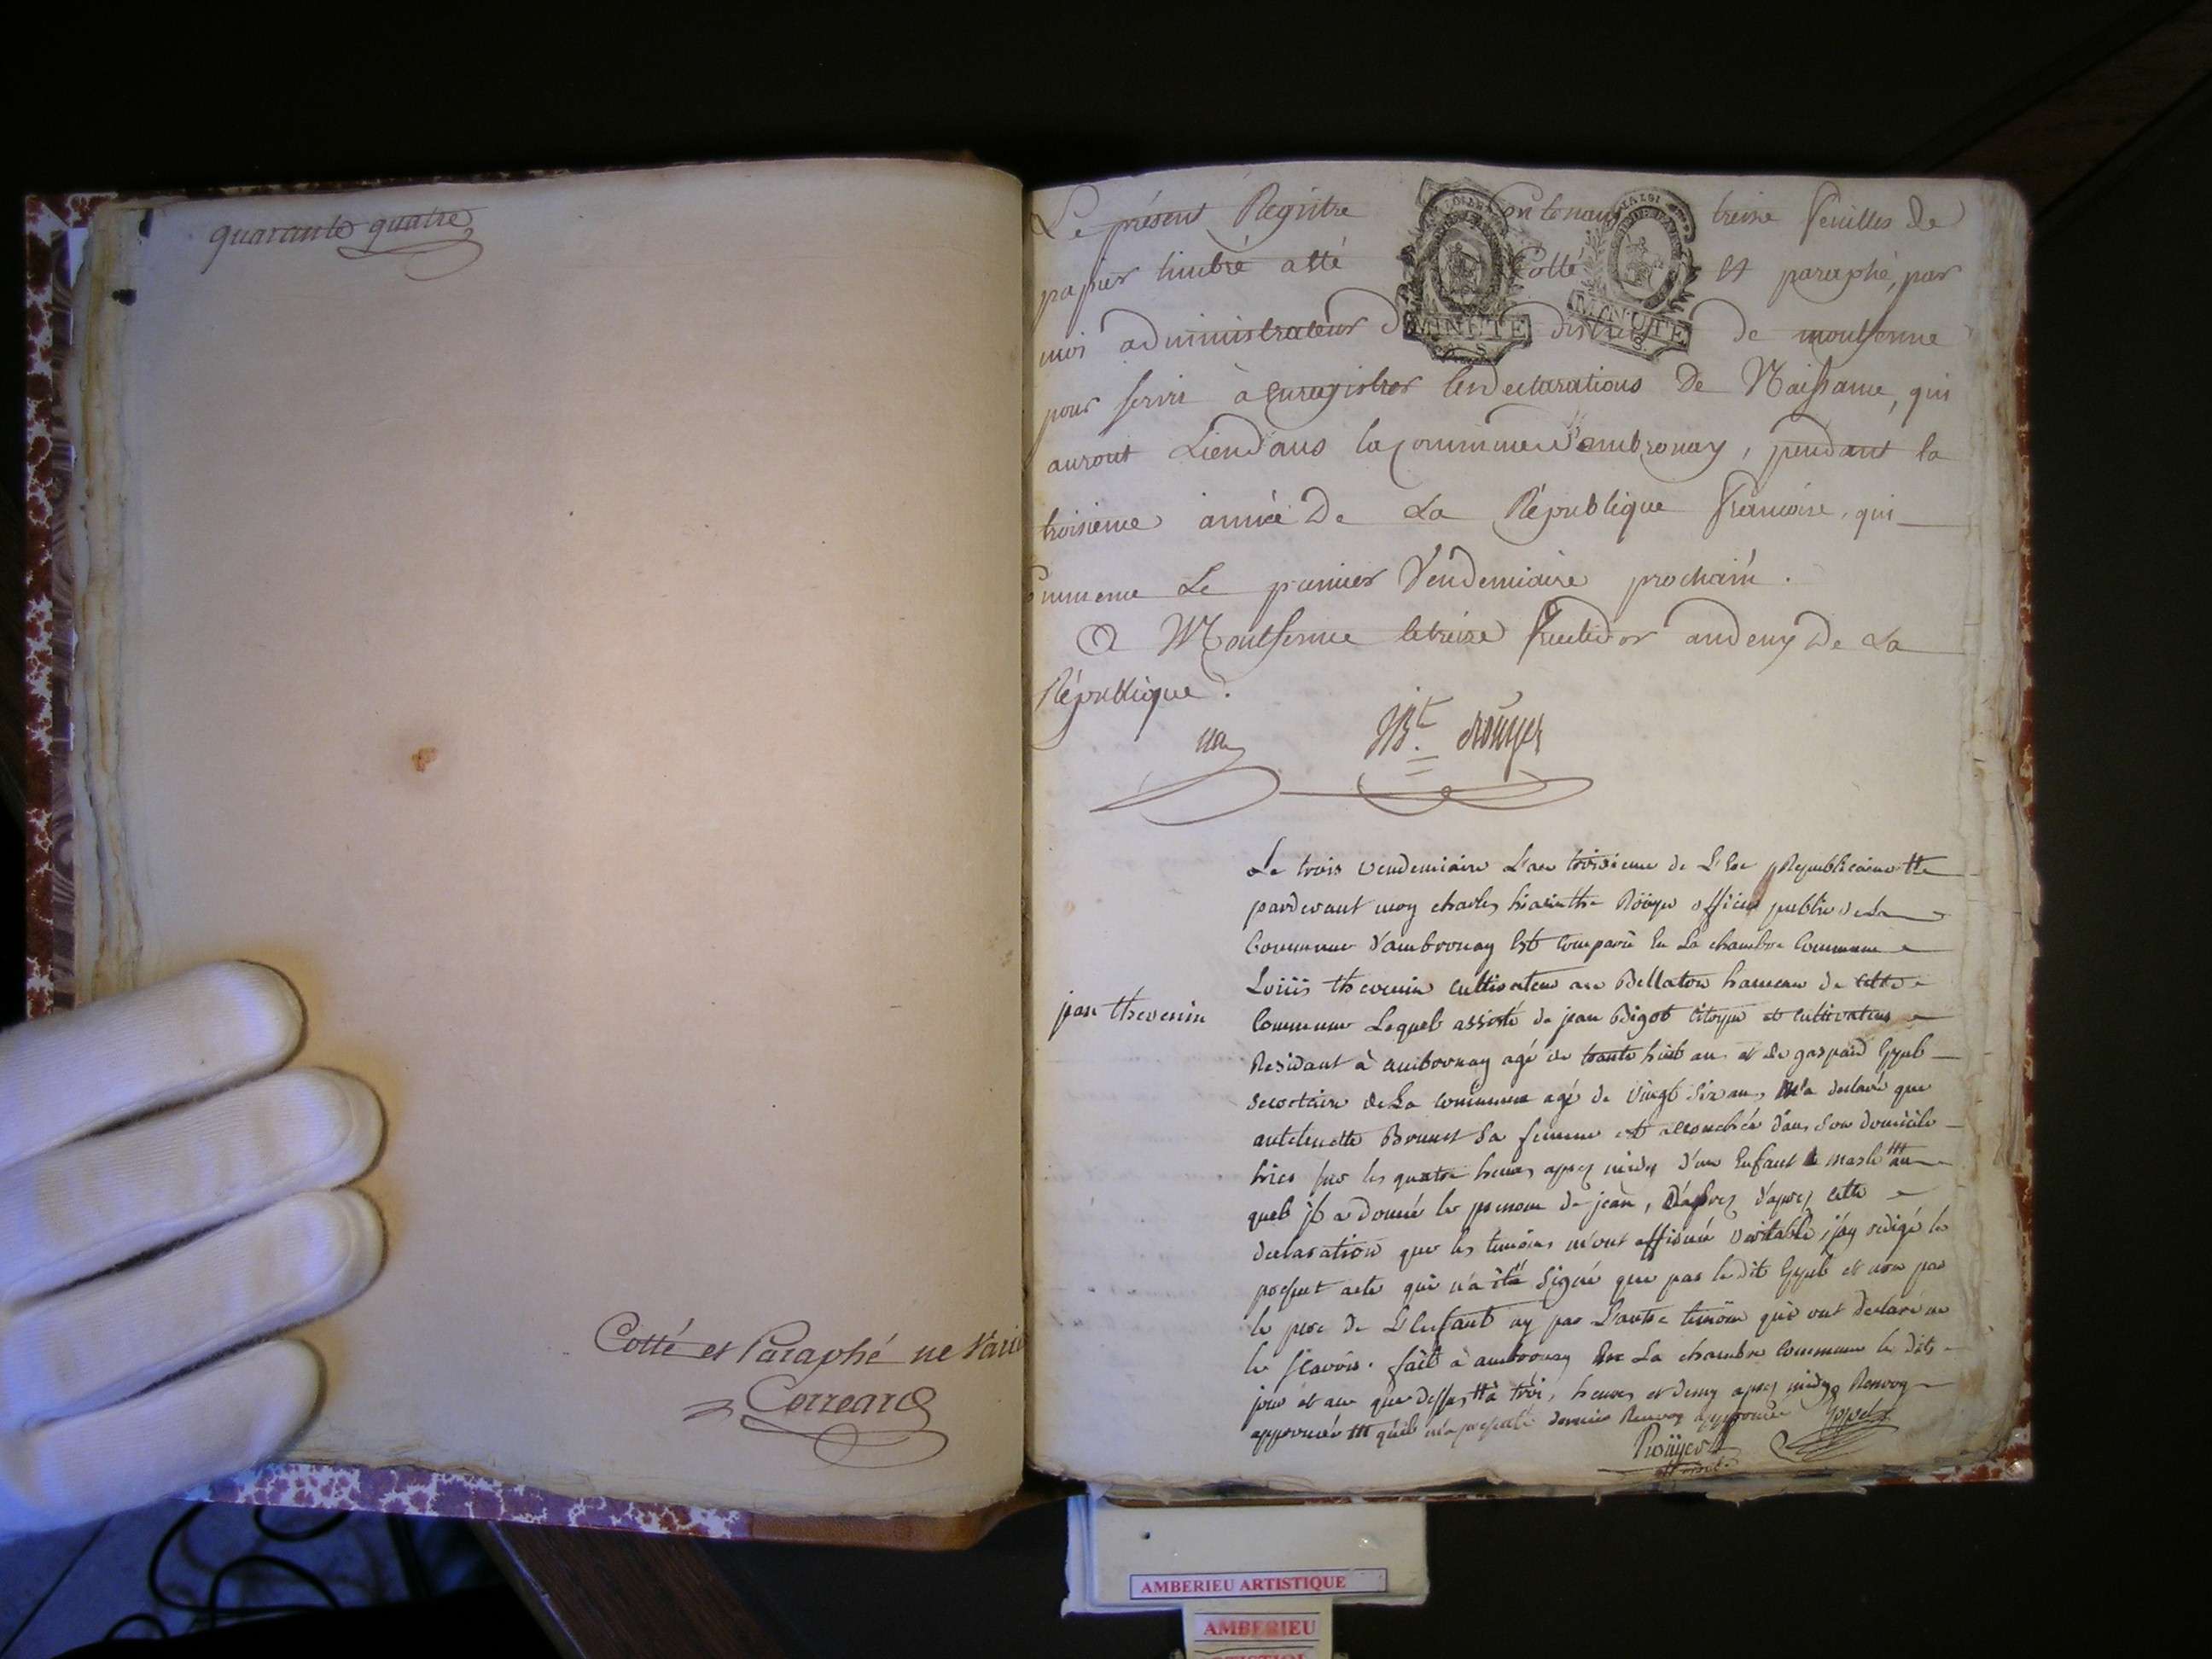 quarante quatre
Cotté et Paraphé ne Varie
Correard
Le présent Registre Contenant treize feuilles de
papier timbré a été Cotté Et paraphé, par
moi administrateur du district de montferme
pour servir à Enregistrer les declarations de Naissance, qui
auront Lieu dans la Commune d'ambronay, pendant la
troisieme année De La République francoise, qui
Commence Le premier Vendemiaire prochain.
A Montferme le treize fructidor an deux De La
République.
Bt. rouyer
MINUTE
MINUTE
Le trois vendemiaire L'an troisieme de L'Ere Republicaine ⧺
pardevant moy charles hiacinthe Roüyer officier public de La
Commune d'ambronay Est Comparu En La chambre Commune
Loüis thevenin cultivateur au Bellaton hameau de cette
jean thevenin
Commune Lequel assisté de jean Bigot citoyen et cultivateur
Residant à ambronay agé de trante huit ans et de gaspard Gypel
secretaire de La commune agé de vingt six ans, m'a declaré que
anthelmette Brunet sa femme est accouchée dans son domicile
hier sur les quatre heures apres midy d'un Enfant masle au
quel il a donné le prenom de jean, d'apres cette
declaration que les temoins m'ont affirmé veritable, j'ay redigé le
present acte qui n'a été signé que par le dit Gypel et non par
le pere de L'Enfant ny par L'autre temoin qui ont declaré ne
le sçavoir. fait à ambronay En La chambre commune le dit
jour et an que dessus à trois heures et demy apres midy Renvoy
approuvée qu'il m'a presenté dernier Renvoy approuvée Gypel
Roüyer
AMBERIEU ARTISTIQUE
AMBERIEU
ARTISTIQUE